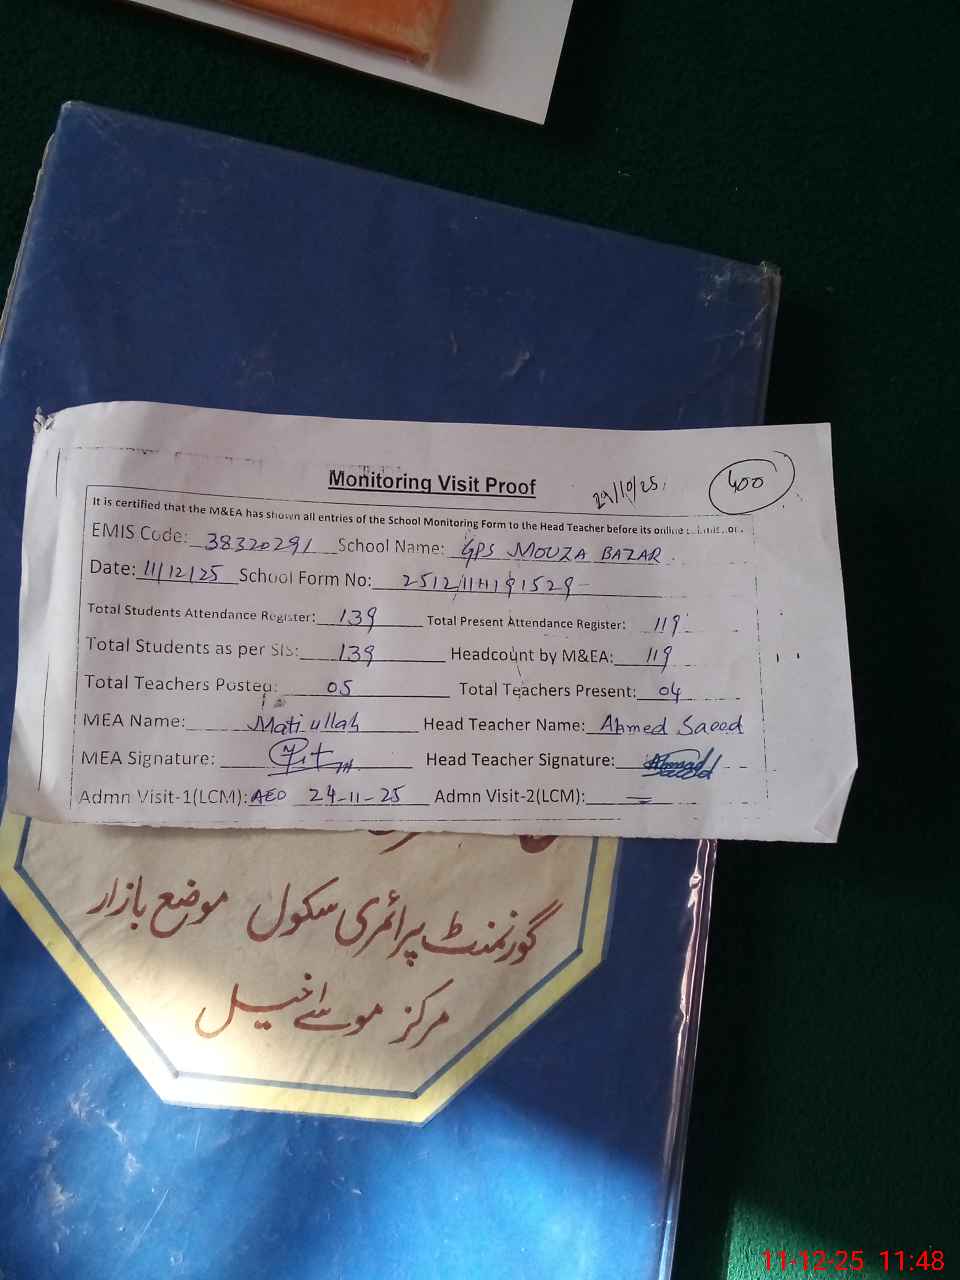 Monitoring Visit Proof
29/10/25.
400
It is certified that the M&EA has shown all entries of the School Monitoring Form to the Head Teacher before its online
EMIS Code: 38320291 School Name: GPS MOUZA BAZAR
Date: 11/12/25 School Form No:
Total Students Attendance Register: 139 Total Present Attendance Register: 119
Total Students as per SIS: 139 Headcount by M&EA: 119
Total Teachers Posted: 05 Total Teachers Present: 04
MEA Name: Matiullah Head Teacher Name: Ahmed Saeed
MEA Signature: Head Teacher Signature: Ahmad Saeed
Admn Visit-1(LCM): AEO 24-11-25 Admn Visit-2(LCM):
گورنمنٹ پرائمری سکول موضع بازار
مرکز موسے اخیل
11-12-25 11:48